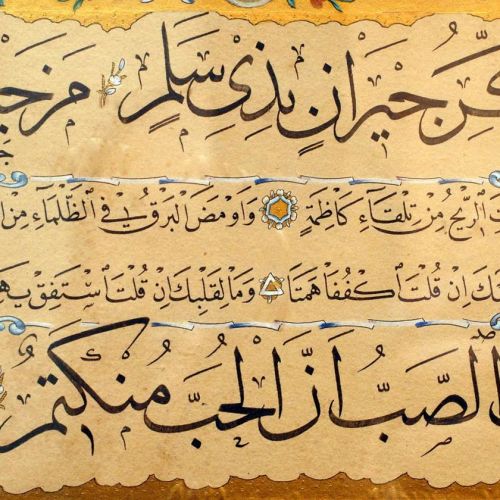 كُّرِ جِيْرَانٍ بِذِى سَلَمٍ مَزَجْـ
ـتِ الرِّيحُ مِنْ تِلْقَاءِ كَاظِمَةٍ وَاَوْمَضَ الْبَرْقُ فِى الظَّلْمَاءِ مِنْ
ـكَ اِنْ قُلْتَ اكْفُفَا هَمَتَا وَمَا لِقَلْبِكَ اِنْ قُلْتَ اسْتَفِقْ يَهِـ
الصَّبُّ اَنَّ الْحُبَّ مُنْكَتِمٌ